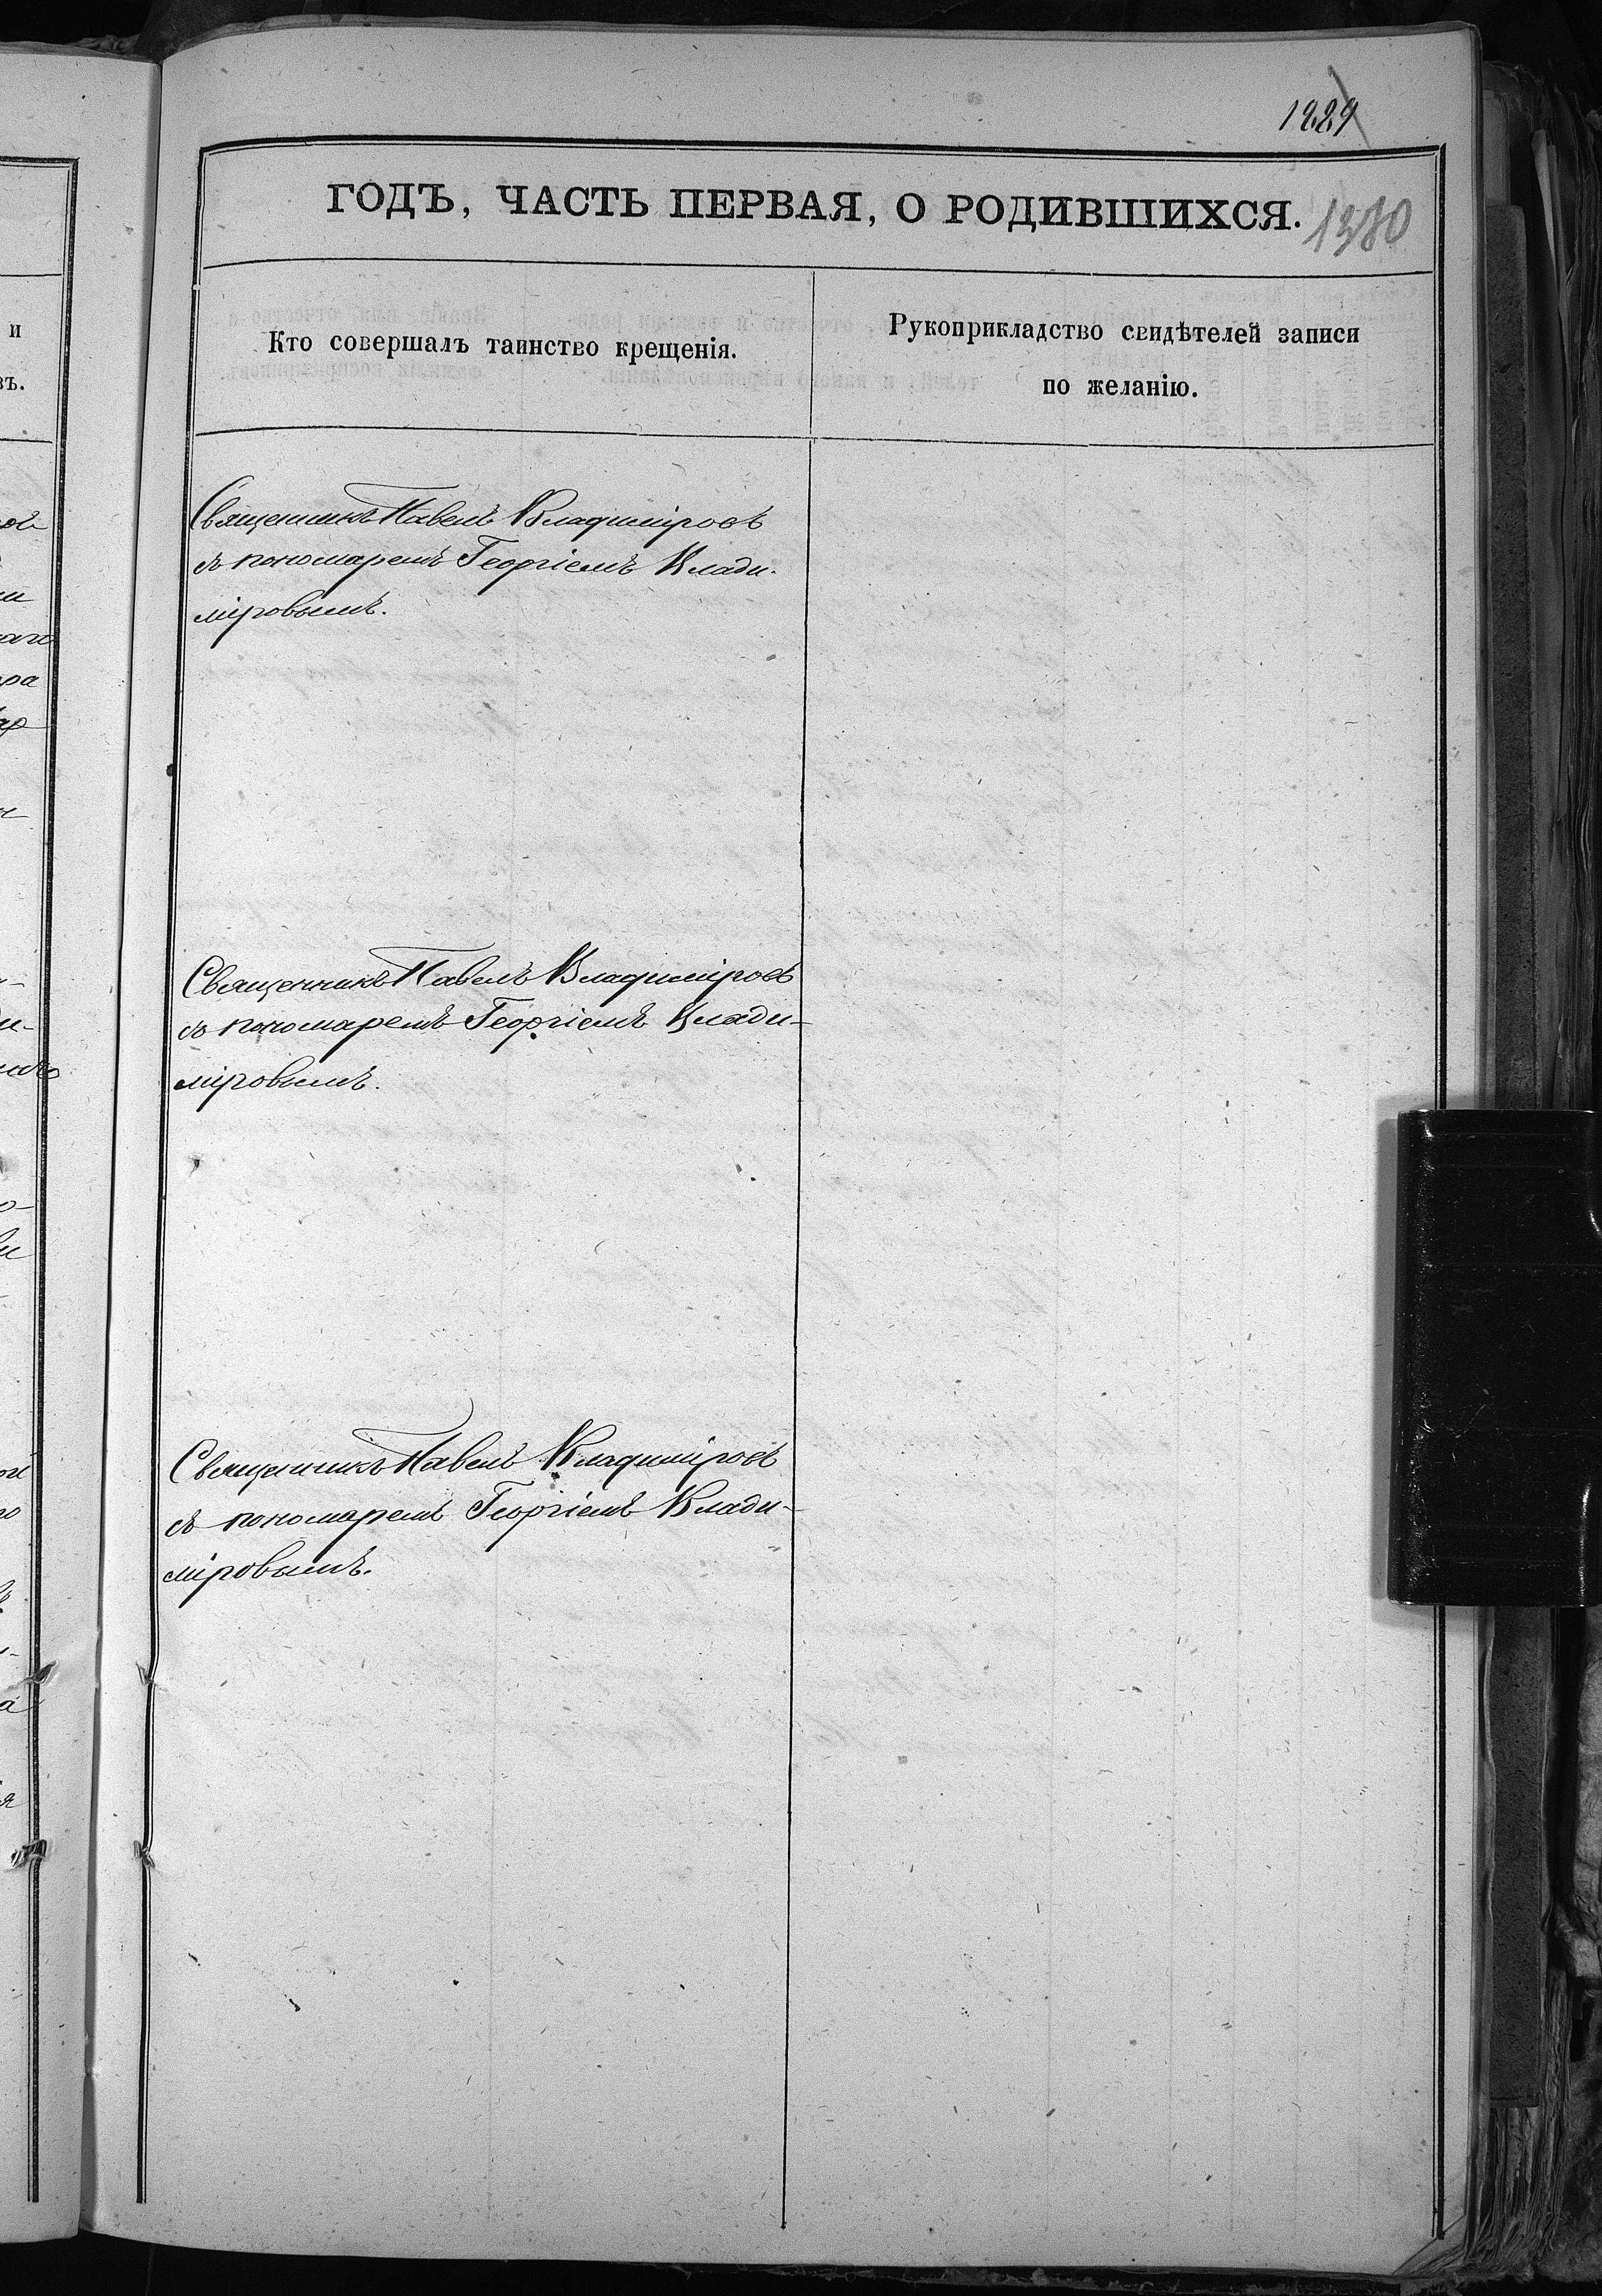 1229
ГОДЪ, ЧАСТЬ ПЕРВАЯ, О РОДИВШИХСЯ.
1380
Кто совершалъ таинство крещенія.
Рукоприкладство свидѣтелей записи
по желанію.
Священникъ Павелъ Владиміровъ
съ пономаремъ Георгіемъ Влади-
міровымъ.
Священникъ Павелъ Владиміровъ
съ пономаремъ Георгіемъ Влади-
міровымъ.
Священникъ Павелъ Владиміровъ
съ пономаремъ Георгіемъ Влади-
міровымъ.